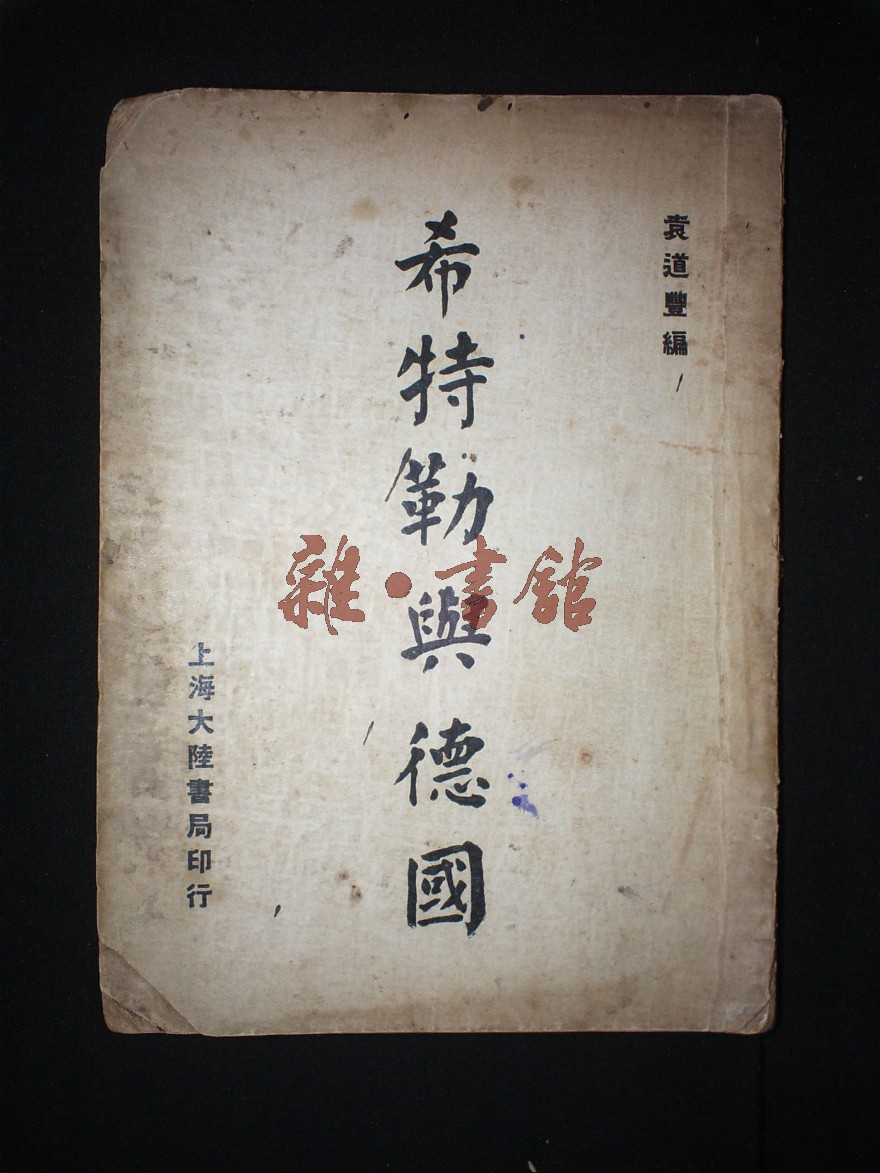 袁道豐編
希特勒與德國
上海大陸書局印行
雜·書館